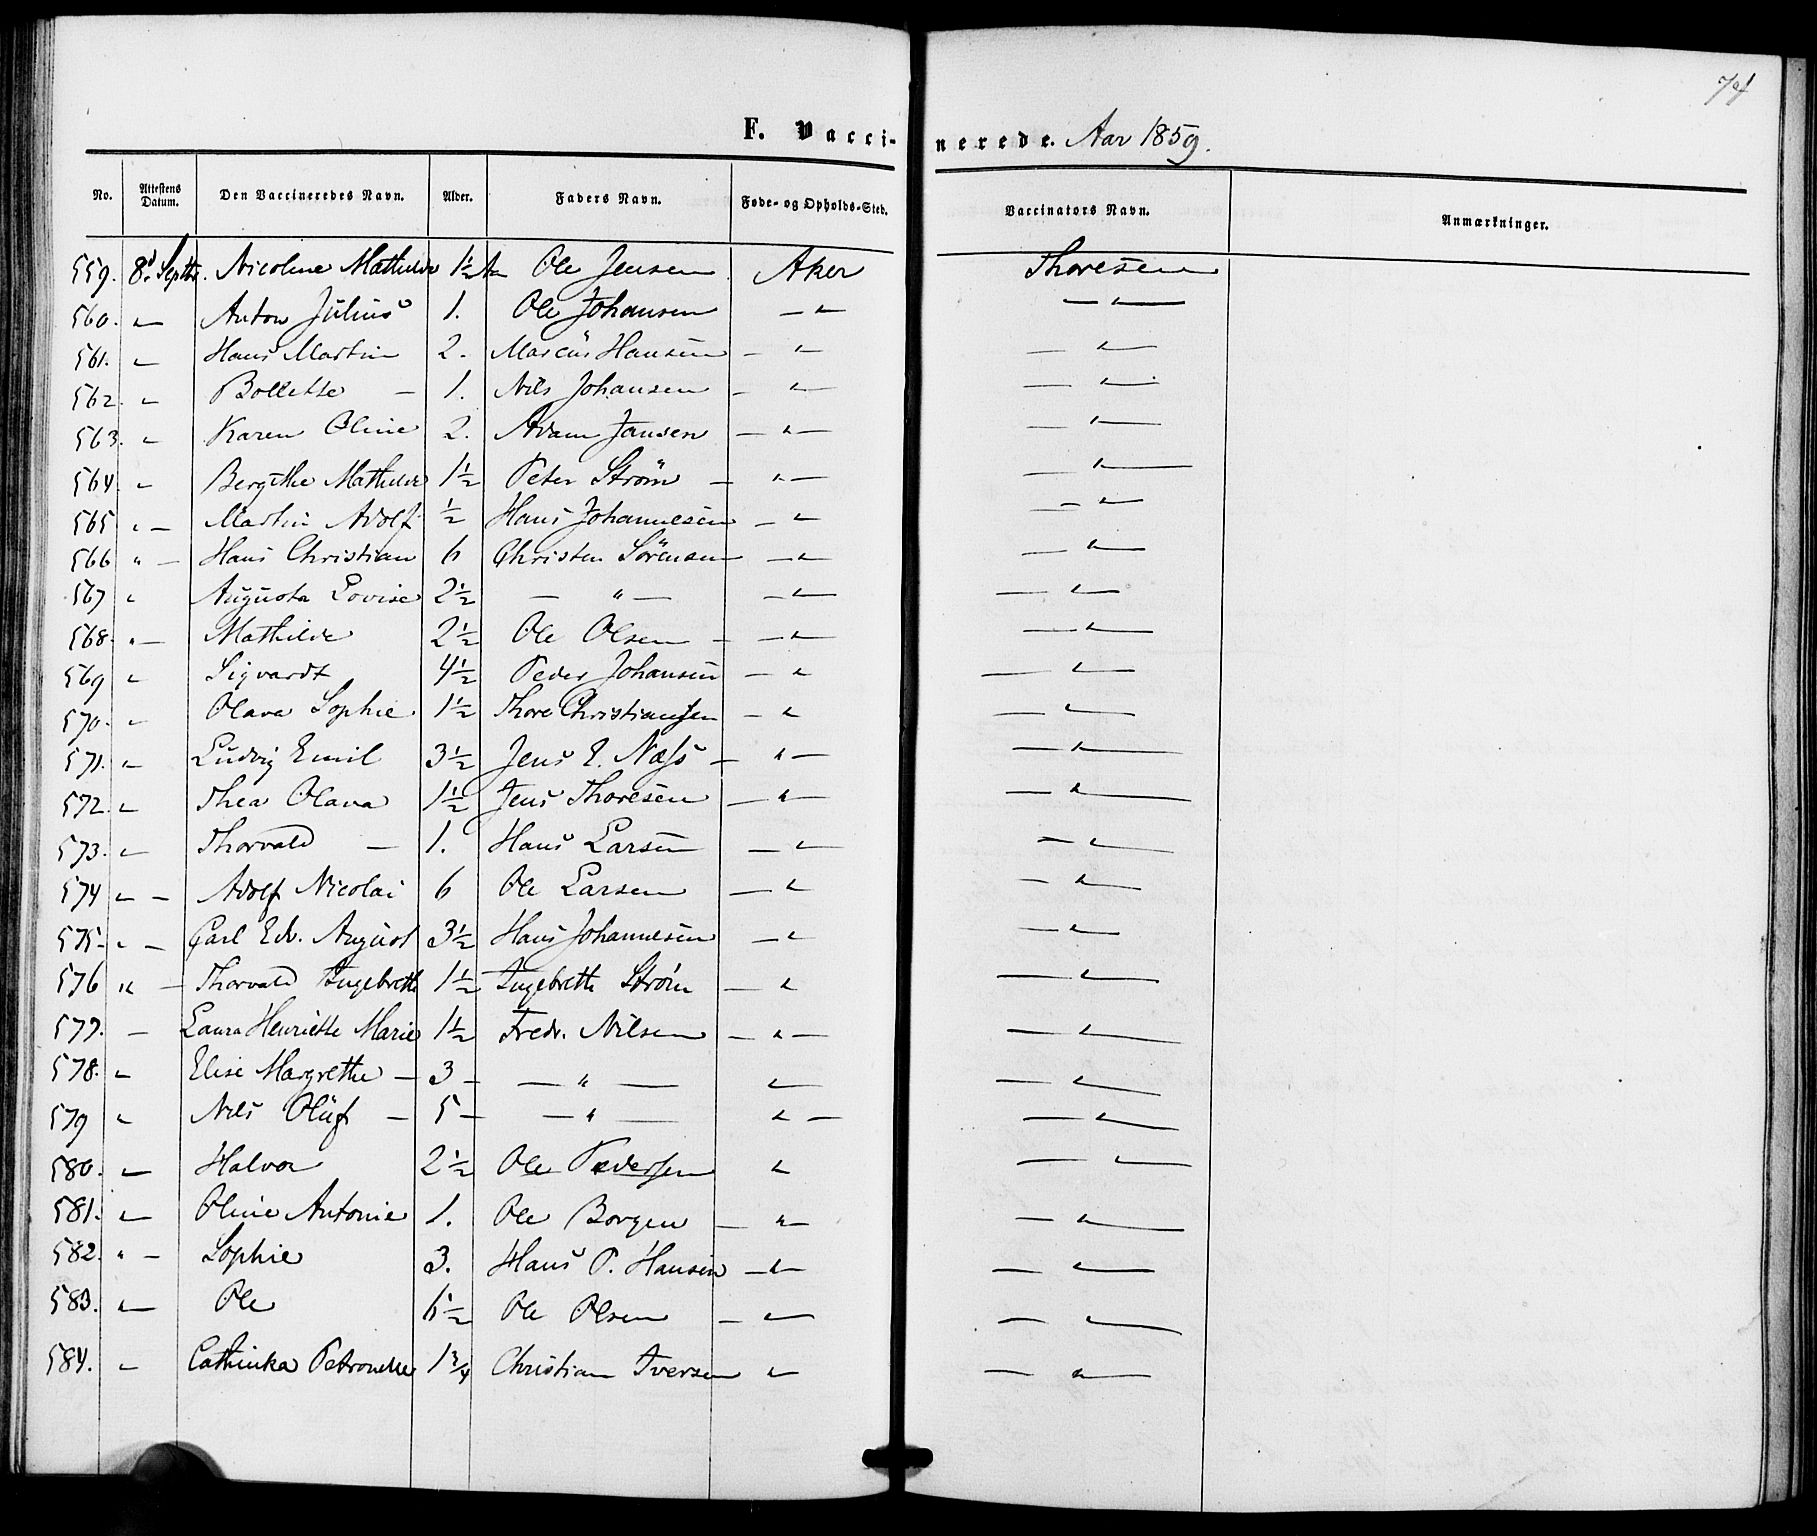 74
F. Vaccinerede. Aar 1859.
No. Attestens Datum. Den Vaccineredes Navn. Alder. Faders Navn. Føde- og Opholds-Sted. Vaccinators Navn. Anmærkninger.
559. 8d Septbr. Nicoline Mathilde 1½ Aar Ole Jensen Aker Thoresen
560. " Anton Julius 1. Ole Johansen — " — " —
561. " Hans Martin 2. Marcus Hansen — " — " —
562. " Bollette — 1. Nils Johansen — " — — " —
563. " Karen Oline 2. Adam Jansen — " — — " —
564. " Bergithe Mathilde 1½ Peter Strøm — " — — " —
565 " — Martin Adolf ½ Hans Johannesen — " — " —
566 " — Hans Christian 6 Christen Sørensen — " — " —
567 " Augusta Lovise 2½ — " — — " — — " —
568. " — Mathilde 2½ Ole Olsen — — " — " —
569 " Sigvardt 4½ Peder Johansen — " — " —
570. " Olava Sophie 1½ Thore Christiansen — " — " —
571. " Ludvig Emil 3½ Jens E. Næss — " — — " —
572. " Thea Olava 1½ Jens Thoresen — " — — " —
573. " Thorvald — 1. Hans Larsen — " — — " —
574 " — Adolf Nicolai 6 Ole Larsen — " — " —
575 — " — Carl Edv. August 3½ Hans Johannesen — " — " —
576 " — Thorvald Ingebreth 1½ Ingebreth Strøm — " — " —
577. — Laura Henriette Marie 1½ Fredr. Nilsen — " — — " —
578. " Elise Margrethe — 3 — — " — " — — " —
579 " Nils Oluf — 5 — — " — " — — " —
580. " Halvor 2½ Ole Pedersen " — " —
581. " Oline Antonie 1. Ole Borgen — " — — " —
582. " — Sophie 3. Hans P. Hansen — " — — " —
583. " Ole 6½ Ole Olsen — " — — " —
584. " Cathinka Petronelle 1¾ Christian Iversen " — " —